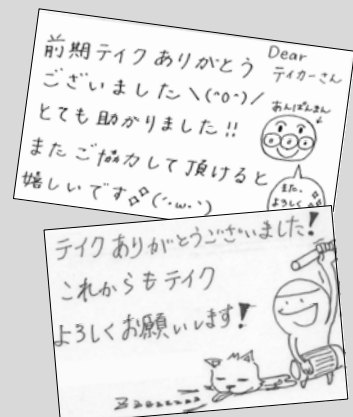 前期テイクありがとう
ございました＼(^o^)／
とても助かりました!!
またご協力して頂けると
嬉しいです(´・ω・`)
Dear
テイカーさん
あんぱんまん
また、
よろしく
テイクありがとうございました!
これからもテイク
よろしくお願いします!
Zzzzzzzz